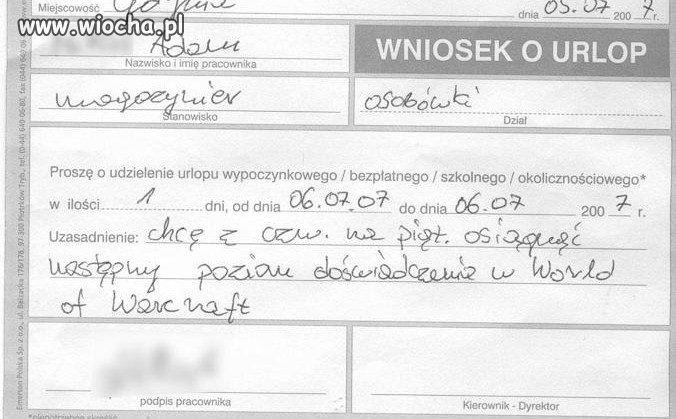 www.wiocha.pl
Miejscowość dnia 05.07 2007 r.
Adam
Nazwisko i imię pracownika
WNIOSEK O URLOP
magazynier
Stanowisko
osobówki
Dział
Proszę o udzielenie urlopu wypoczynkowego / bezpłatnego / szkolnego / okolicznościowego*
w ilości 1 dni, od dnia 06.07.07 do dnia 06.07 2007 r.
Uzasadnienie: chcę z czw. na piąt. osiągnąć
następny poziom doświadczenia w World
of Warcraft
podpis pracownika
Kierownik - Dyrektor
*niepotrzebne skreślić